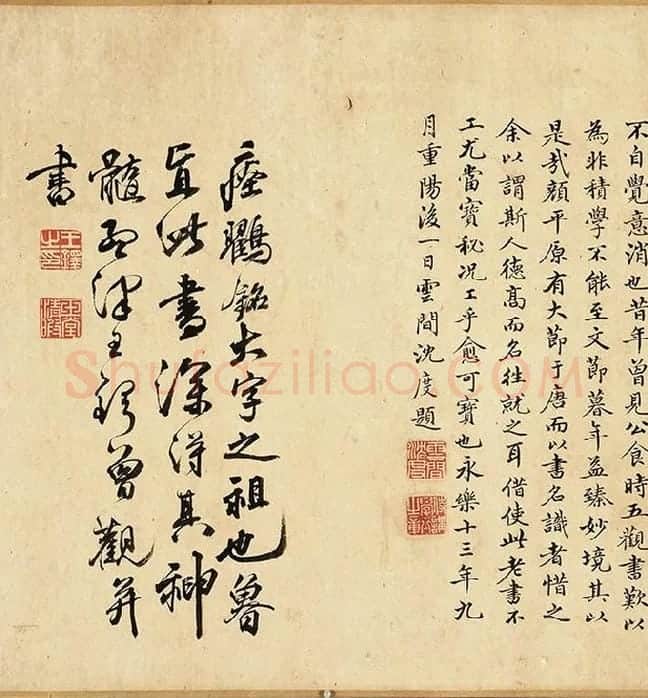 不自覺意消也昔年曾見公食時五觀書歎以
為非積學不能至文節暮年益臻妙境其以
是哉顏平原有大節于唐而以書名識者惜之
余以謂斯人德高而名往就之耳借使此老書不
工尤當寶秘况工乎愈可寶也永樂十三年九
月重陽後一日雲間沈度題
瘞鸖銘大字之祖也魯
直此書深得其神
髓孟津王鐸曾觀并
書
王鐸之印
Shufaziliao.com